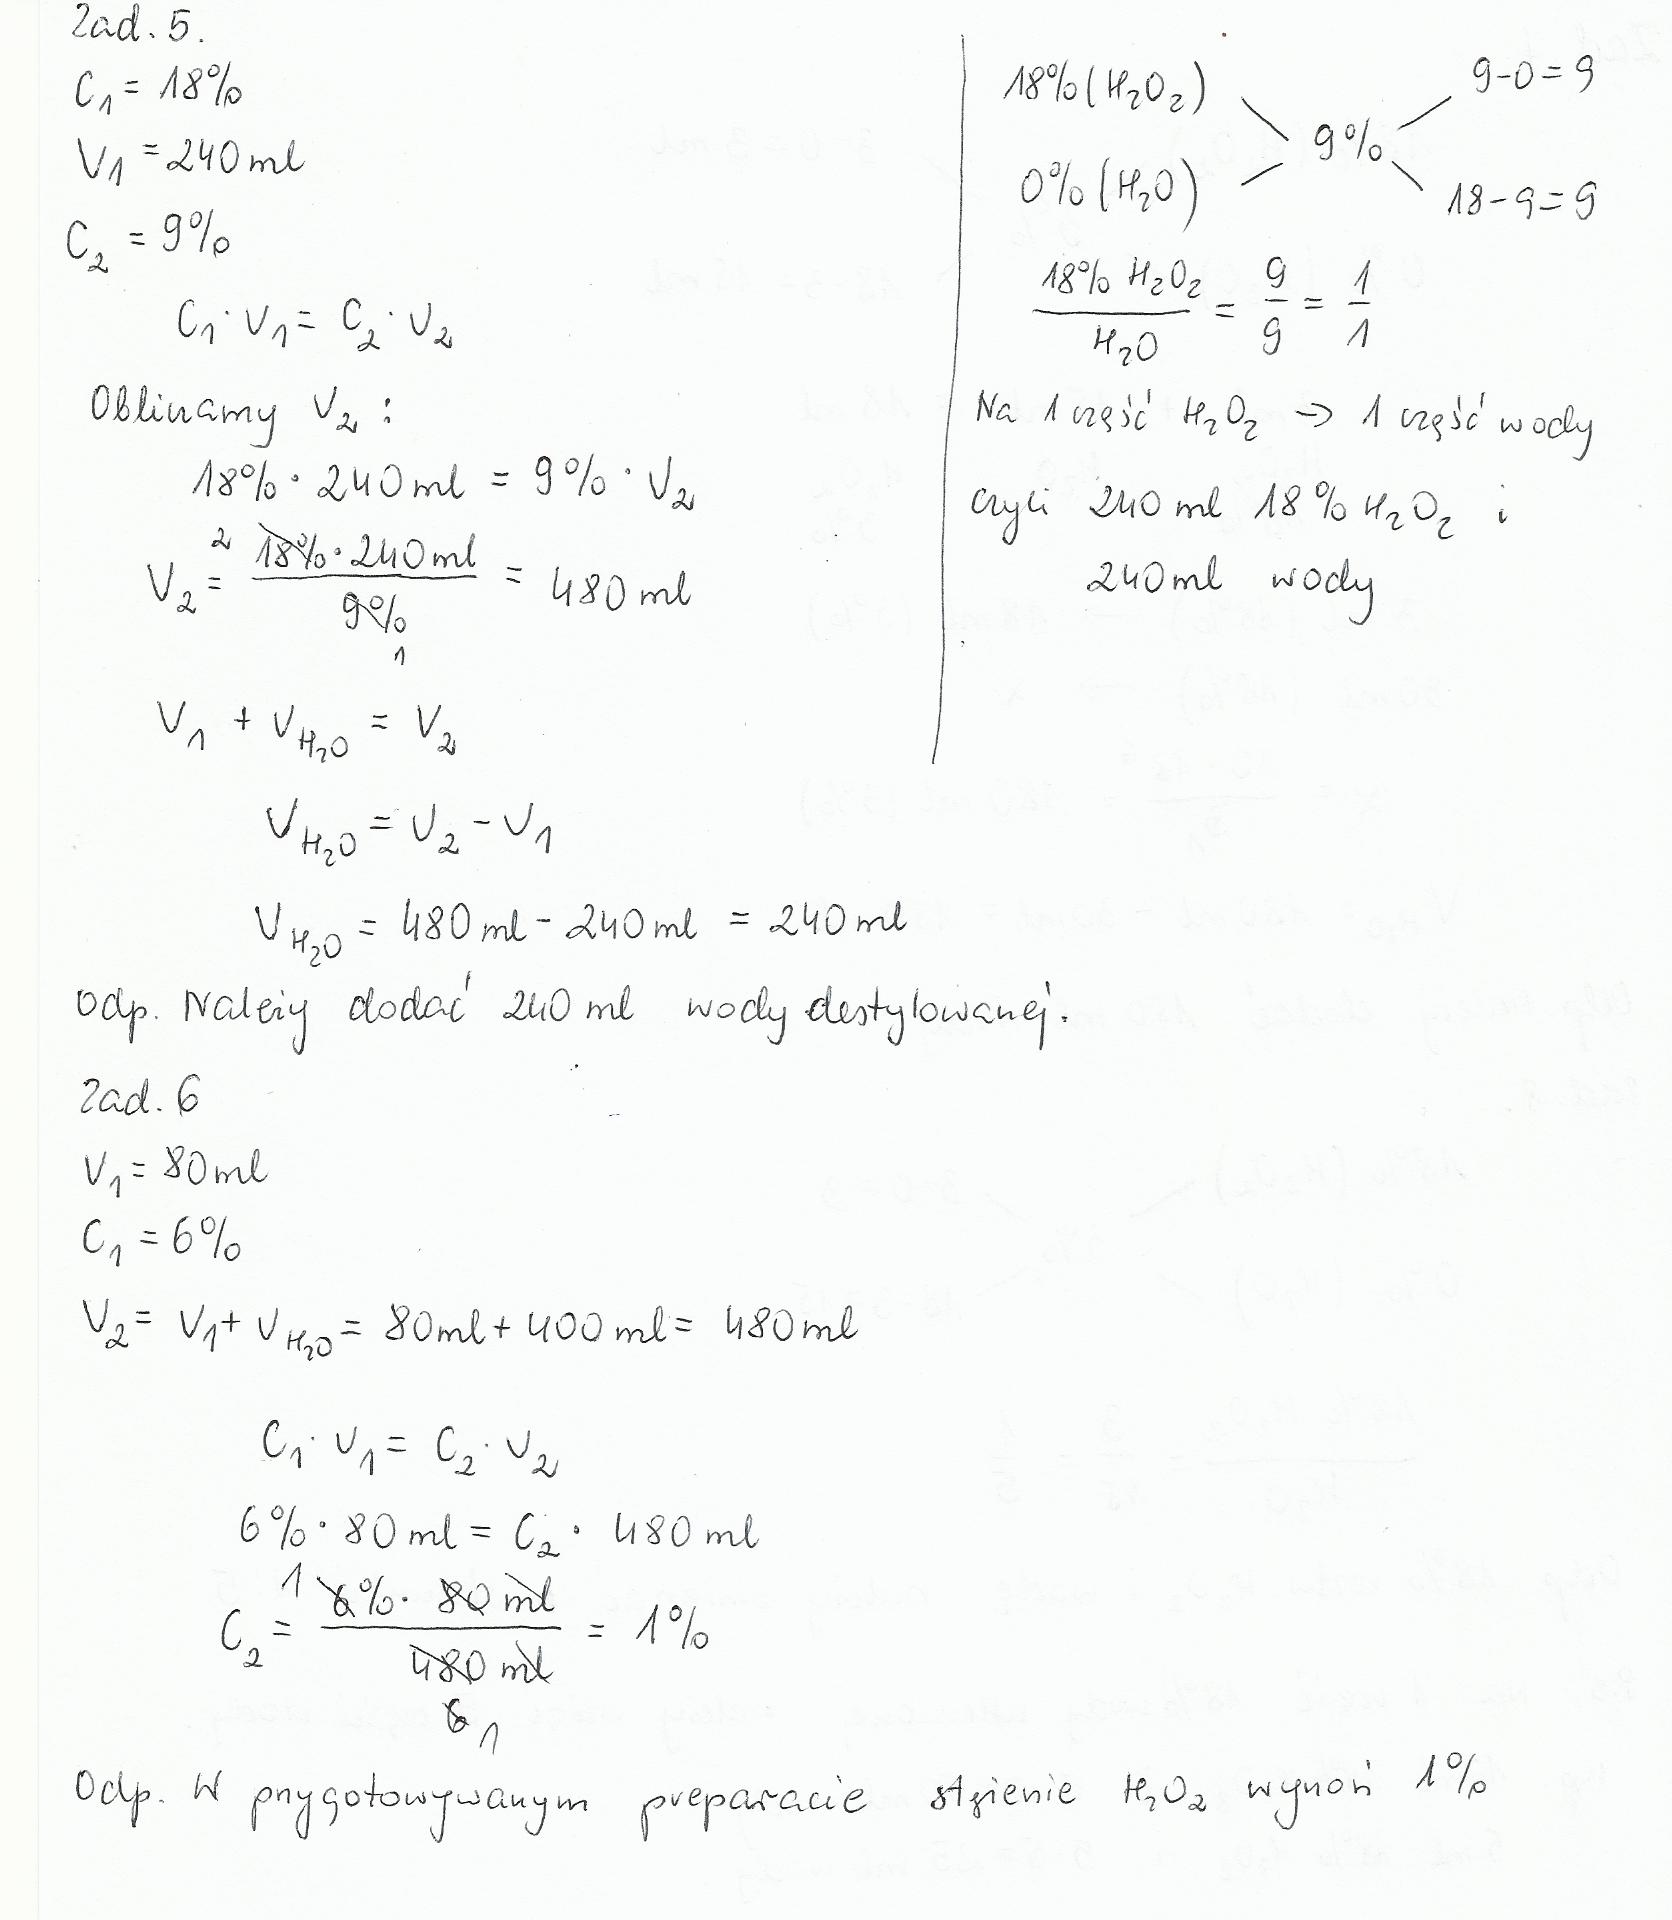 Zad. 5.
C₁ = 18%
V₁ = 240 ml
C₂ = 9%
C₁ · V₁ = C₂ · V₂
Obliczamy V₂ :
18% · 240 ml = 9% · V₂
V₂ = 2 18% · 240 ml / 9% 1 = 480 ml
V₁ + V H₂O = V₂
V H₂O = V₂ - V₁
V H₂O = 480 ml - 240 ml = 240 ml
Odp. Należy dodać 240 ml wody destylowanej.
18% (H₂O₂)
0% (H₂O)
9%
9-0 = 9
18-9 = 9
18% H₂O₂ / H₂O = 9/9 = 1/1
Na 1 część H₂O₂ → 1 część wody
czyli 240 ml 18% H₂O₂ i
240 ml wody
Zad. 6
V₁ = 80 ml
C₁ = 6%
V₂ = V₁ + V H₂O = 80 ml + 400 ml = 480 ml
C₁ · V₁ = C₂ · V₂
6% · 80 ml = C₂ · 480 ml
C₂ = 1 6% · 80 ml / 480 ml 6 1 = 1%
Odp. W przygotowywanym preparacie stężenie H₂O₂ wynosi 1%